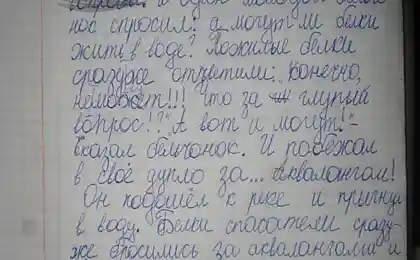 вопросы. И один молодой бельчо-
нок спросил: а могут ли белки
жить в воде? Пожилые белки
сразуже ответили: Конечно,
неможет!!! Что за глупый
вопрос!? "А вот и могут!"-
сказал бельчонок. И побежал
в своё дупло за... аквалангом!
Он подошёл к реке и прыгнул
в воду. Белки спасатели сразу-
же бросились за аквалангами и